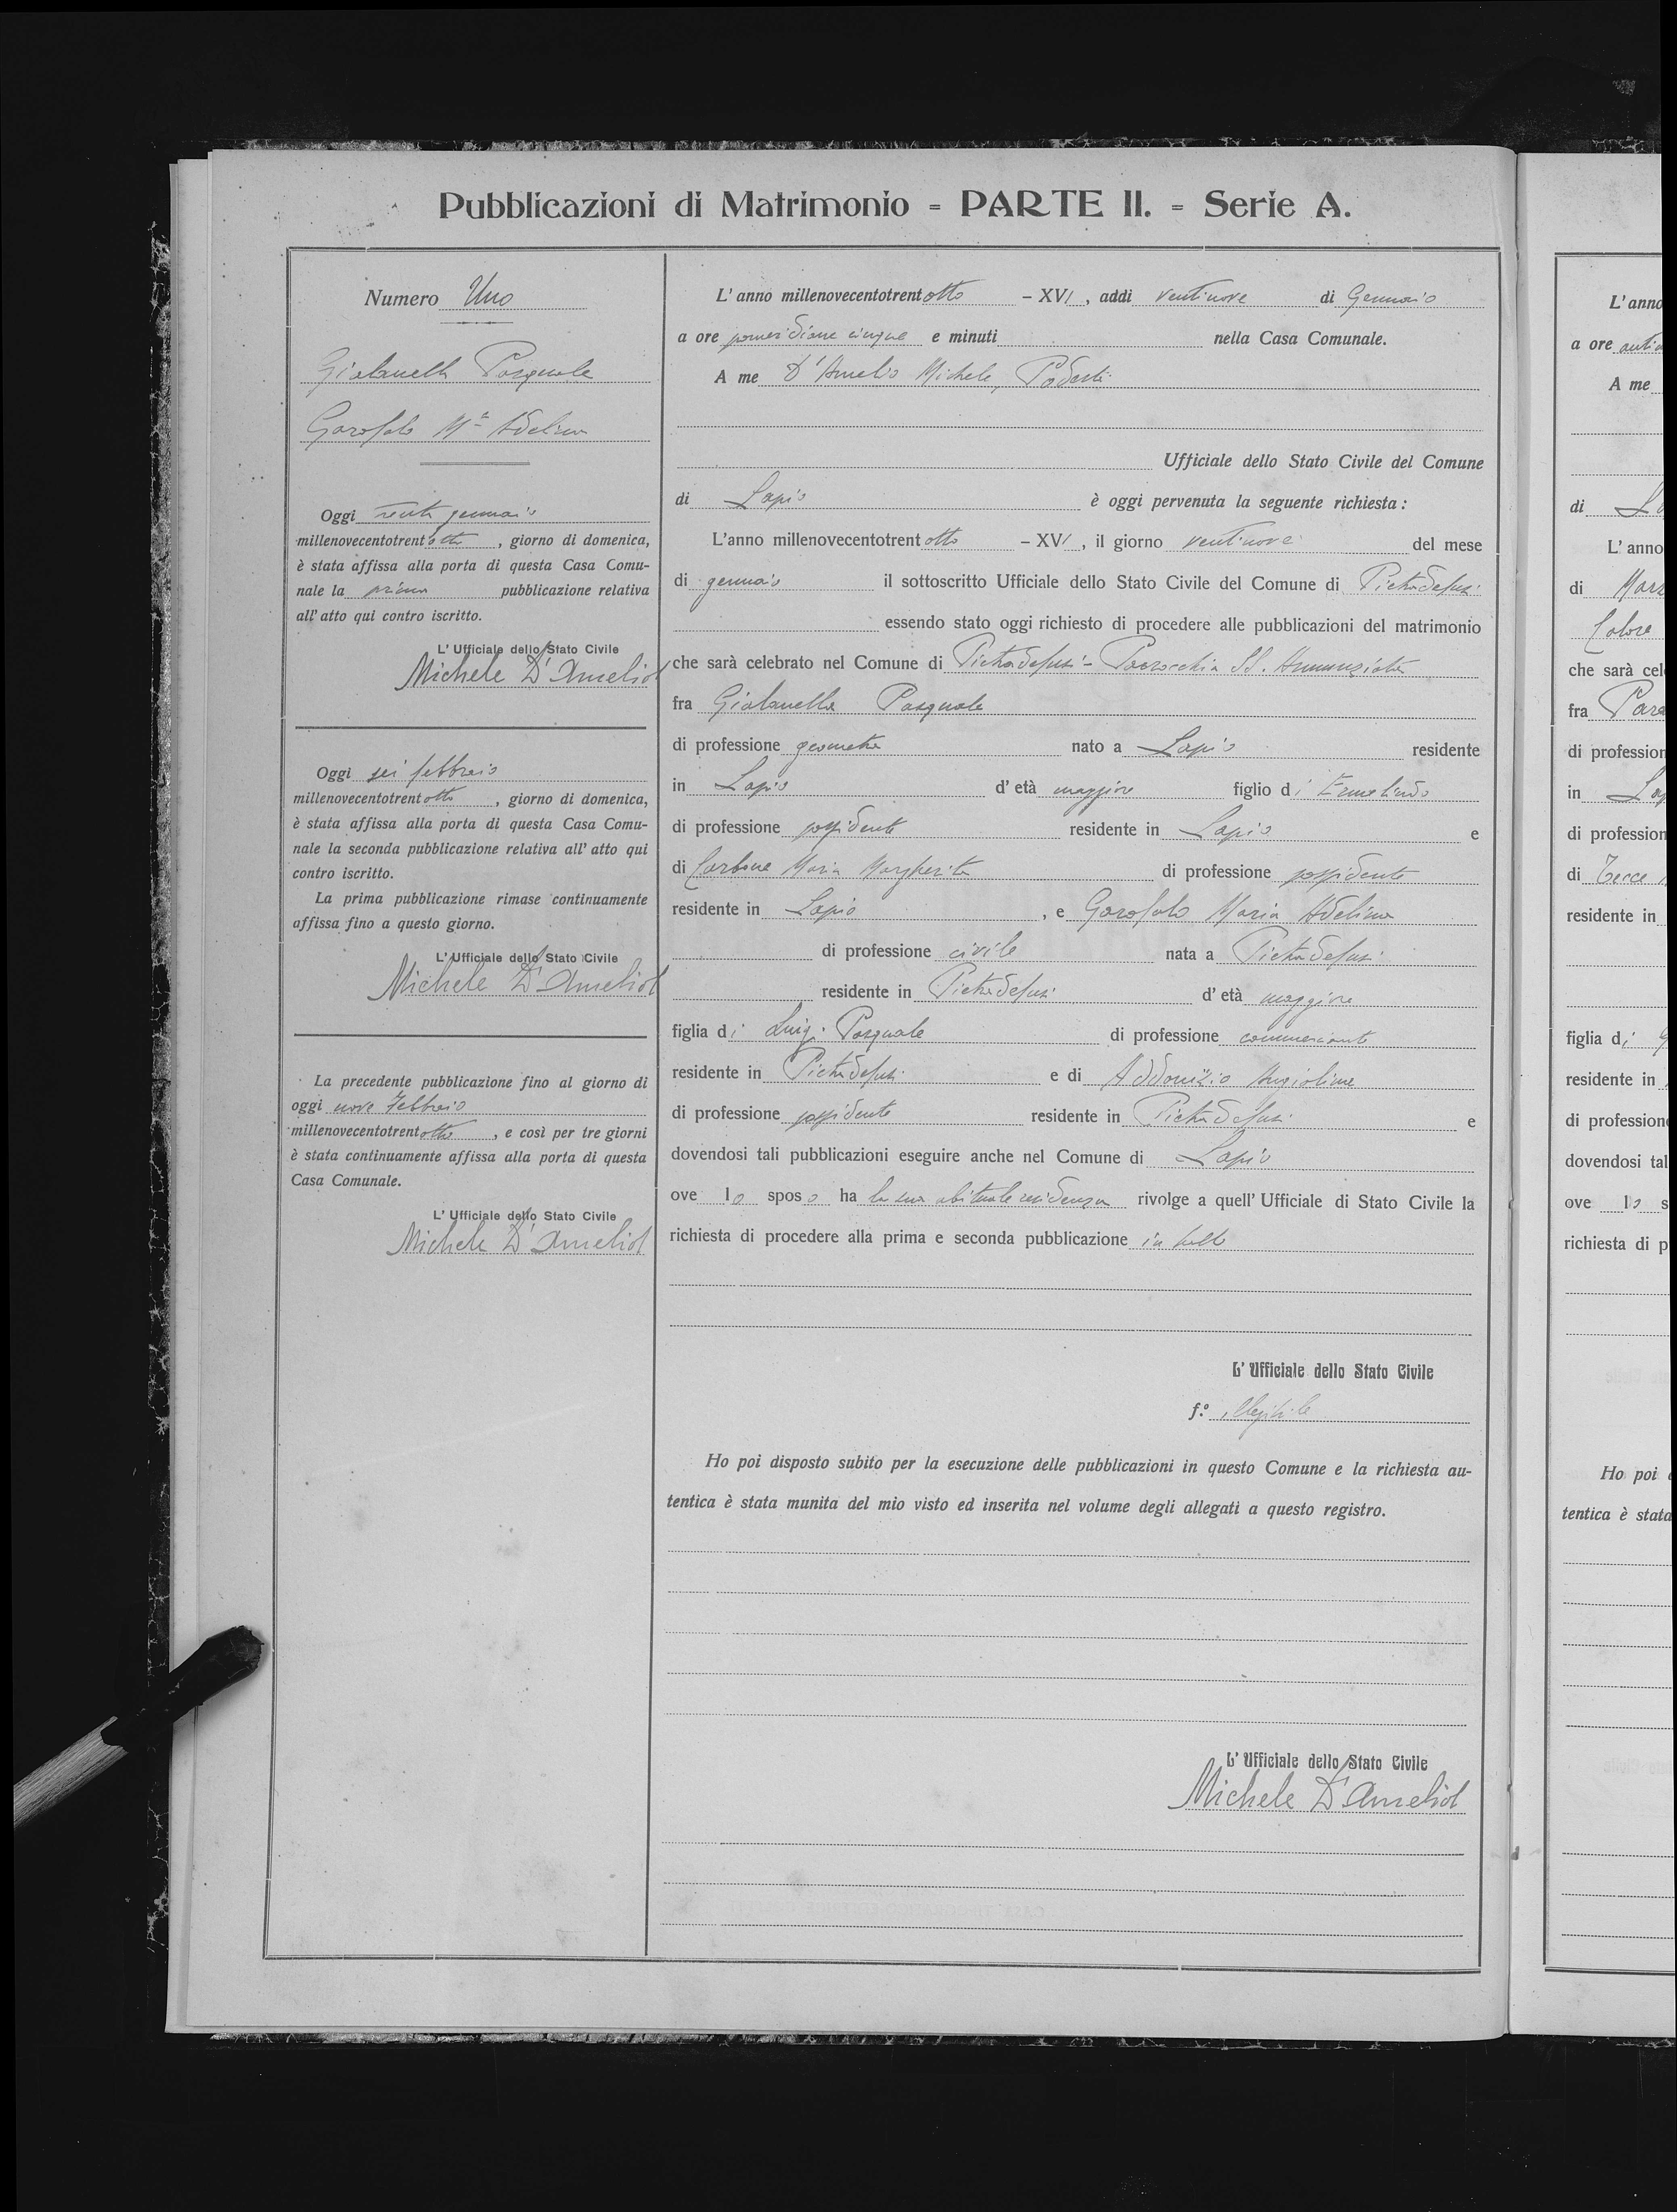 Pubblicazioni di Matrimonio = PARTE II. = Serie A.
Numero Uno
Pasquale
Garofalo Mª Adelina
Oggi trenta gennaio
millenovecentotrentotto, giorno di domenica,
è stata affissa alla porta di questa Casa Comu-
nale la prima pubblicazione relativa
all'atto qui contro iscritto.
L'Ufficiale dello Stato Civile
Michele D'Amelio
Oggi sei febbraio
millenovecentotrentotto, giorno di domenica,
è stata affissa alla porta di questa Casa Comu-
nale la seconda pubblicazione relativa all'atto qui
contro iscritto.
La prima pubblicazione rimase continuamente
affissa fino a questo giorno.
L'Ufficiale dello Stato Civile
Michele D'Amelio
La precedente pubblicazione fino al giorno di
oggi nove Febbraio
millenovecentotrentotto, e così per tre giorni
è stata continuamente affissa alla porta di questa
Casa Comunale.
L'Ufficiale dello Stato Civile
Michele D'Amelio
L'anno millenovecentotrentotto - XVI, addì ventinove di Gennaio
a ore pomeridiane cinque e minuti nella Casa Comunale.
A me D'Amelio Michele, Podestà
Ufficiale dello Stato Civile del Comune
di Lapio è oggi pervenuta la seguente richiesta:
L'anno millenovecentotrentotto - XVI, il giorno ventinove del mese
di gennaio il sottoscritto Ufficiale dello Stato Civile del Comune di Pietradefusi
essendo stato oggi richiesto di procedere alle pubblicazioni del matrimonio
che sarà celebrato nel Comune di Pietradefusi - Parrocchia SS. Annunziata
fra Pasquale
di professione geometra nato a Lapio residente
in Lapio d'età maggiore figlio di Ermelindo
di professione possidente residente in Lapio e
di Carbone Maria Margherita di professione possidente
residente in Lapio, e Garofalo Maria Adelina
di professione civile nata a Pietradefusi
residente in Pietradefusi d'età maggiore
figlia di Luigi Pasquale di professione commerciante
residente in Pietradefusi e di Addonizio Angiolina
di professione possidente residente in Pietradefusi e
dovendosi tali pubblicazioni eseguire anche nel Comune di Lapio
ove lo sposo ha la sua abituale residenza rivolge a quell'Ufficiale di Stato Civile la
richiesta di procedere alla prima e seconda pubblicazione in bollo
L'Ufficiale dello Stato Civile
f.º illegibile
Ho poi disposto subito per la esecuzione delle pubblicazioni in questo Comune e la richiesta au-
tentica è stata munita del mio visto ed inserita nel volume degli allegati a questo registro.
L'Ufficiale dello Stato Civile
Michele D'Amelio
L'anno
a ore
A me
di
L'anno
di
che sarà cel
fra
di profession
in
di profession
di Tecce
residente in
figlia di
residente in
di profession
dovendosi tal
ove lo s
richiesta di p
Ho poi
tentica è stata